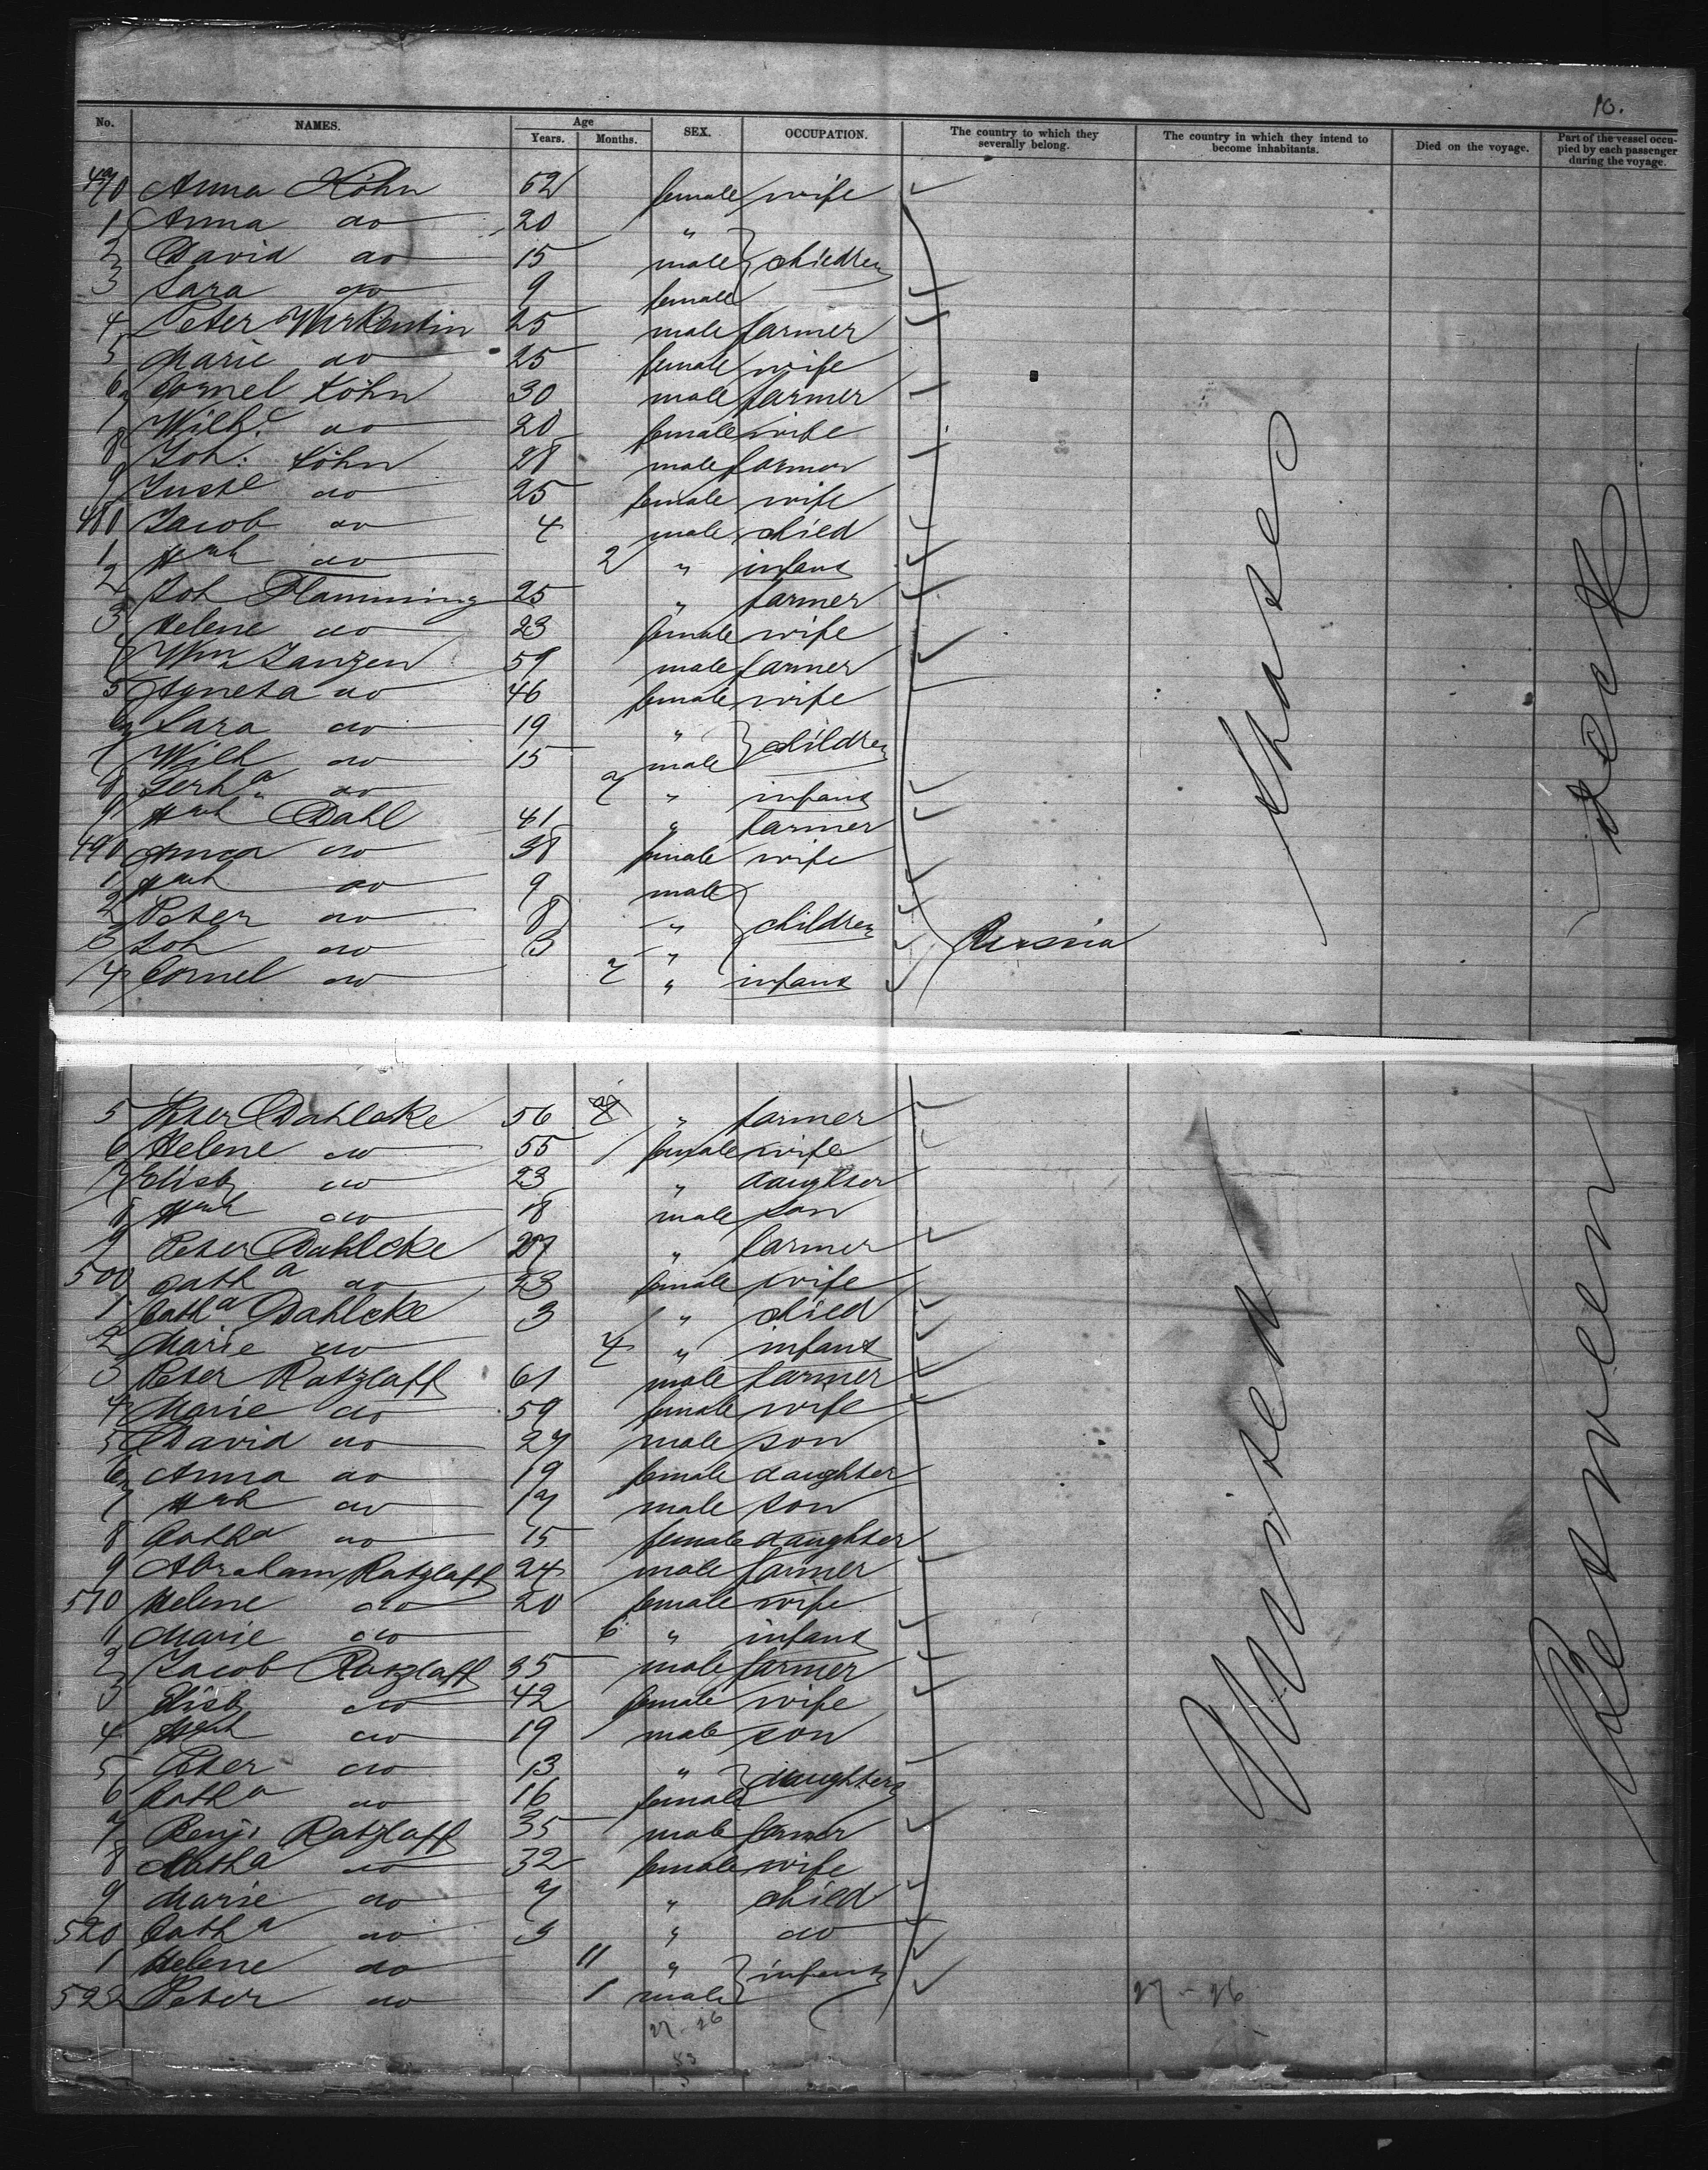 10.
No. NAMES. Age Years. Months. SEX. OCCUPATION. The country to which they severally belong. The country in which they intend to become inhabitants. Died on the voyage. Part of the vessel occupied by each passenger during the voyage.
470 Anna Köhn 52 female wife
1 Anna do 20 "
2 David do 15 male } children
3 Sara do 9 female
4 Peter Wirkentin 25 male farmer
5 Marie do 25 female wife
6 Cornel Köhn 30 male farmer
7 Wilh. do 20 female wife
8 Joh. Köhn 28 male farmer
9 do 25 female wife
480 Jacob do 4 male child
1 Hrch do 2 " infant
2 Joh Flamming 25 " farmer
3 Helene do 23 female wife
4 Wm Janzen 59 male farmer
5 Agneta do 46 female wife
6 Sara do 19 " } children
7 Wilh do 15 male
8 Gerha. do 7 " infant
9 Hrch Dahl 41 " farmer
490 Anna do 38 female wife
1 Hrch do 9 male
2 Peter do 8 " } children
3 Joh do 3 " Russia
4 Cornel do 7 " infant
5 Peter Dahlcke 56 " farmer
6 Helene do 55 female wife
7 Elisb do 23 " daughter
8 Hrch do 18 male son
9 Peter Dahlcke 27 " farmer
500 Catha do 23 female wife
1 Catha Dahlcke 3 " child
2 Marie do 4 " infant
3 Peter Ratzlaff 61 male farmer
4 Marie do 59 female wife
5 David do 27 male son
6 Anna do 19 female daughter
7 Hrch do 17 male son
8 Catha do 15 female daughter
9 Abraham Ratzlaff 24 male farmer
510 Helene do 20 female wife
1 Marie do 6 " infant
2 Jacob Ratzlaff 35 male farmer
3 Elisb do 42 female wife
4 Hrch do 19 male son
5 Peter do 13 " } daughters
6 Catha do 16 female
7 Benj. Ratzlaff 35 male farmer
8 Catha do 32 female wife
9 Marie do 7 " child
520 Catha do 3 " do
1 Helene do 11 " } infants
522 Peter do 1 male
27-26 27-26
53
United States
Between deck